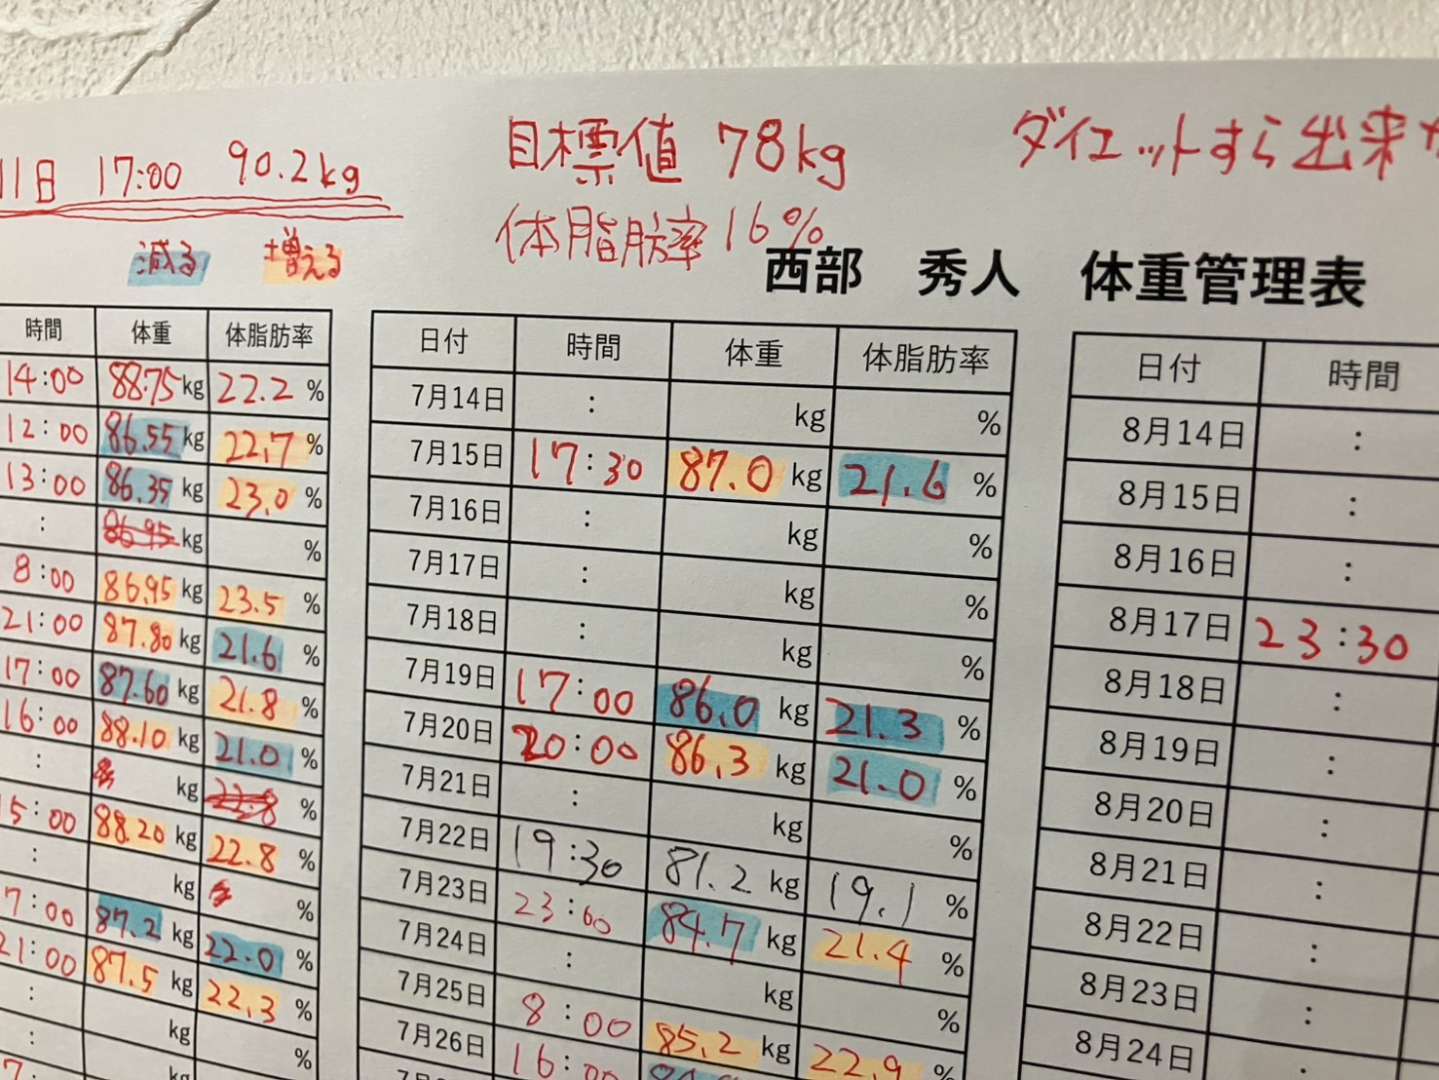 11日 17:00 90.2kg
目標値 78kg
体脂肪率 16%
ダイエットすら出来
減る 増える
西部 秀人 体重管理表
時間 体重 体脂肪率
14:00 88.75 kg 22.2 %
12:00 86.55 kg 22.7 %
13:00 86.35 kg 23.0 %
: 86.95 kg %
8:00 86.95 kg 23.5 %
21:00 87.80 kg 21.6 %
17:00 87.60 kg 21.8 %
16:00 88.10 kg 21.0 %
: kg 22.8 %
15:00 88.20 kg 22.8 %
: kg %
7:00 87.2 kg 22.0 %
21:00 87.5 kg 22.3 %
: kg %
: kg
日付 時間 体重 体脂肪率
7月14日 : kg %
7月15日 17:30 87.0 kg 21.6 %
7月16日 : kg %
7月17日 : kg %
7月18日 : kg %
7月19日 17:00 86.0 kg 21.3 %
7月20日 20:00 86.3 kg 21.0 %
7月21日 : kg %
7月22日 19:30 81.2 kg 19.1 %
7月23日 23:60 84.7 kg 21.4 %
7月24日 : kg %
7月25日 8:00 85.2 kg 22.9 %
7月26日 16:00
日付 時間
8月14日 :
8月15日 :
8月16日 :
8月17日 23:30
8月18日 :
8月19日 :
8月20日 :
8月21日 :
8月22日 :
8月23日 :
8月24日 :